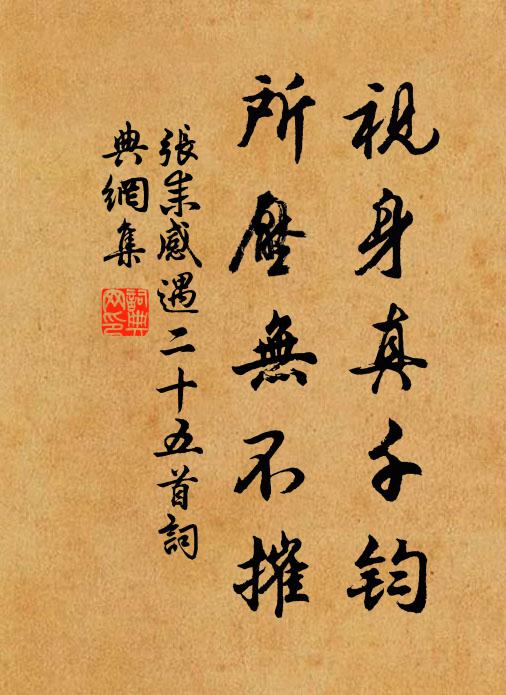 視身真千鈞
所壓無不摧
張耒感遇二十五首詞
典網集
詞典網印